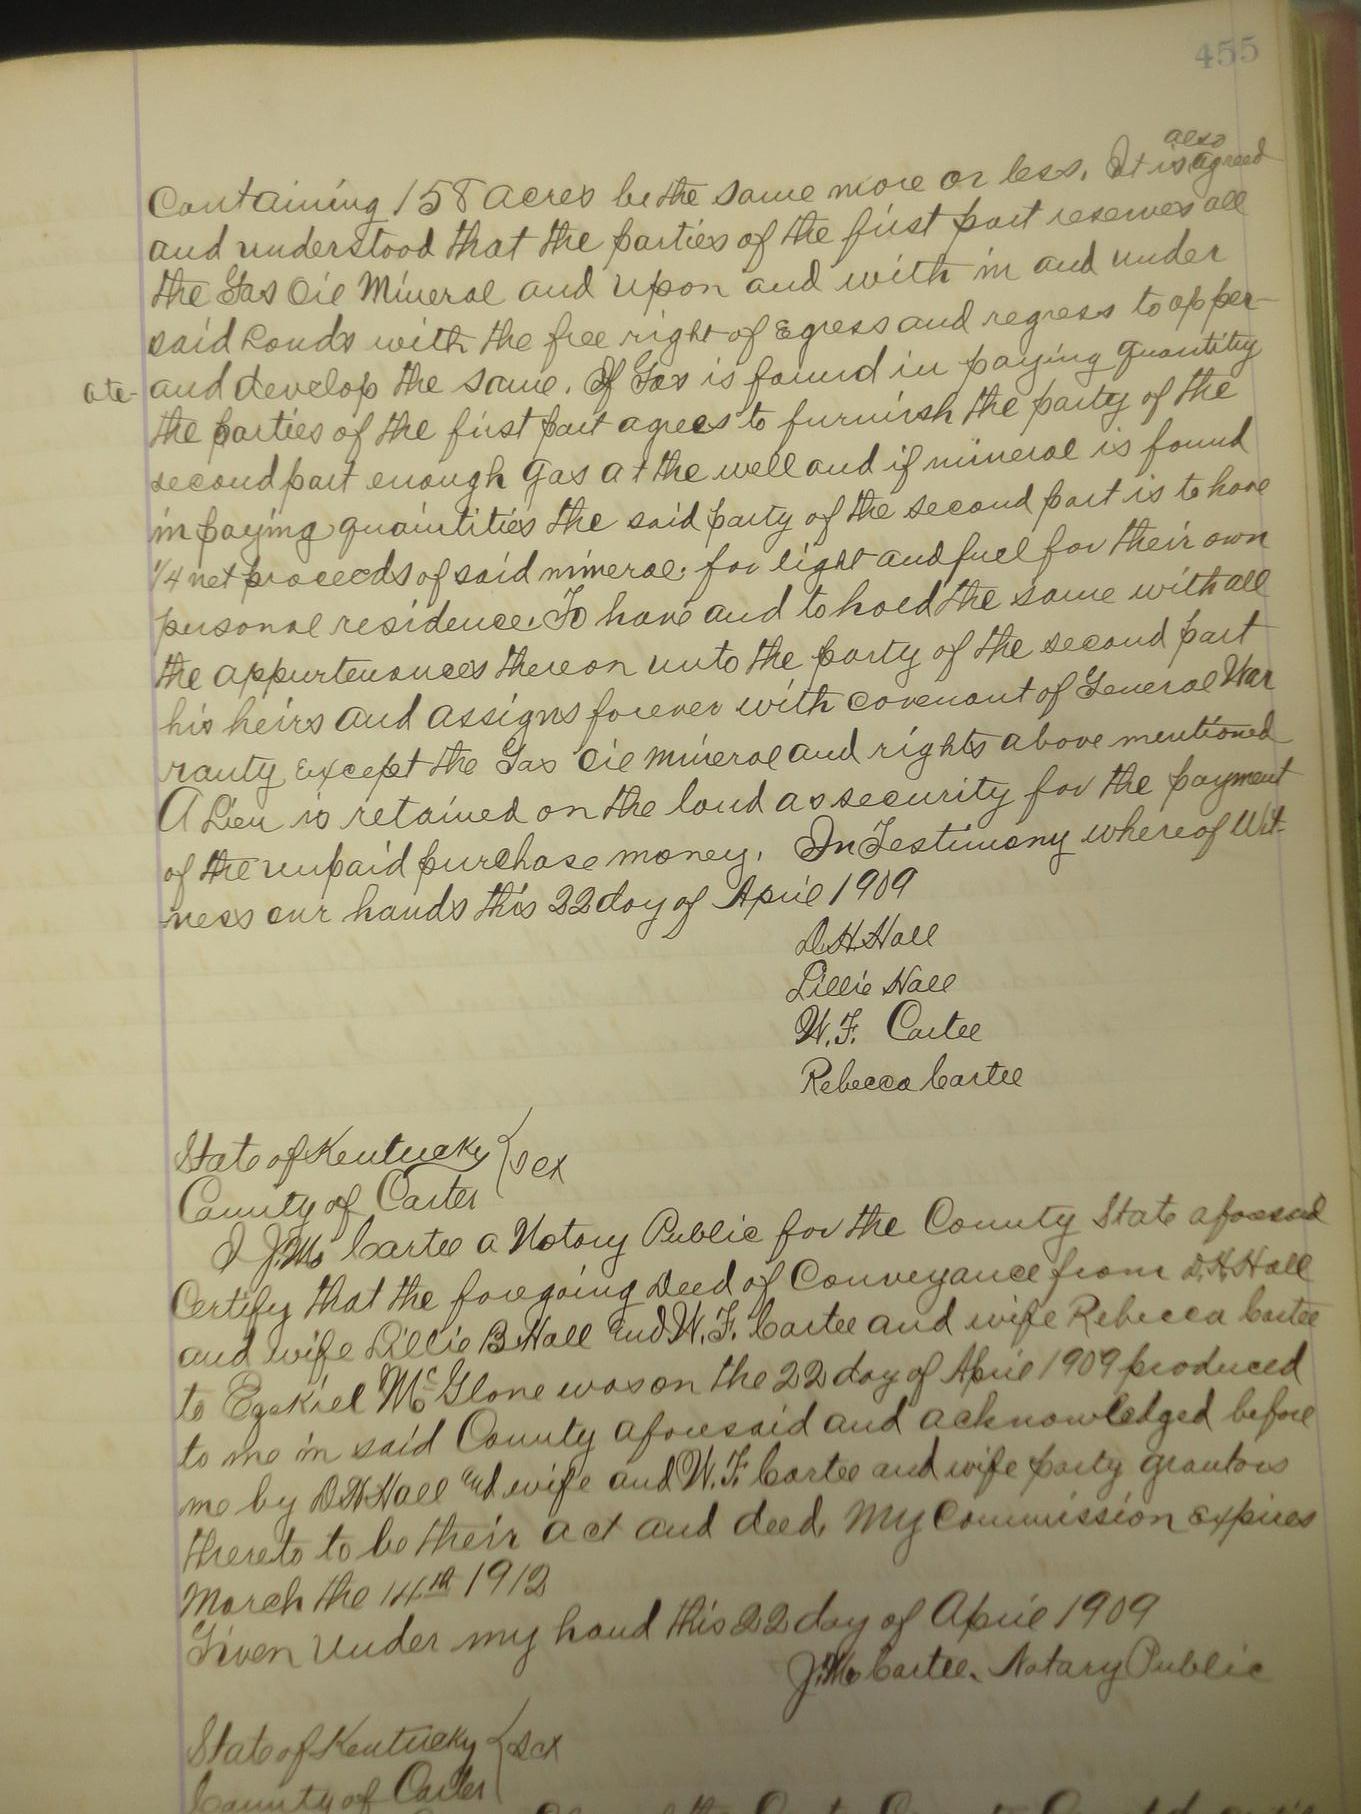 455
also
Containing 158 acres be the same more or less. It is agreed
and understood that the parties of the first part reserves all
the Gas Oil Mineral and upon and with in and under
said Lands with the free right of Egress and regress to opper-
ate- and develop the same. If Gas is found in paying quantity
the parties of the first part agrees to furnish the party of the
second part enough gas at the well and if mineral is found
in paying quaintities the said party of the second part is to have
1/4 net proceeds of said mineral. for light and fuel for their own
personal residence. To have and to hold the same with all
the appurtenances thereon unto the party of the second part
his heirs and assigns forever with covenant of General War
ranty except the Gas Oil mineral and rights above mentioned
A Lien is retained on the land as security for the payment
of the unpaid purchase money. In Testimony whereof Wit-
ness our hands this 22 day of April 1909
D.H. Hall
Lillie Hall
W. F. Cartee
Rebecca Cartee
State of Kentucky { sct
County of Carter
I J.M. Cartee a Notary Public for the County State aforesaid
Certify that the foregoing Deed of Conveyance from D.H. Hall
and wife Lillie B Hall and W. F. Cartee and wife Rebecca Cartee
to Ezekiel McGlone was on the 22 day of April 1909 produced
to me in said County aforesaid and acknowledged before
me by D H Hall and wife and W. F. Cartee and wife party grantors
thereto to be their act and deed. My Commission expires
March the 14th 1912
Given under my hand this 22 day of April 1909
J.M. Cartee. Notary Public
State of Kentucky { sct
County of Carter